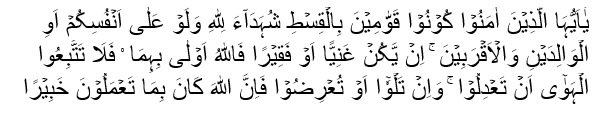 یٰۤاَیُّہَا الَّذِیۡنَ اٰمَنُوۡا کُوۡنُوۡا قَوّٰمِیۡنَ بِالۡقِسۡطِ شُہَدَآءَ لِلّٰہِ وَلَوۡ عَلٰۤی اَنۡفُسِکُمۡ اَوِ
الۡوَالِدَیۡنِ وَالۡاَقۡرَبِیۡنَ ۚ اِنۡ یَّکُنۡ غَنِیًّا اَوۡ فَقِیۡرًا فَاللّٰہُ اَوۡلٰی بِہِمَا ۟ فَلَا تَتَّبِعُوا
الۡہَوٰۤی اَنۡ تَعۡدِلُوۡا ۚ وَاِنۡ تَلۡوٗۤا اَوۡ تُعۡرِضُوۡا فَاِنَّ اللّٰہَ کَانَ بِمَا تَعۡمَلُوۡنَ خَبِیۡرًا